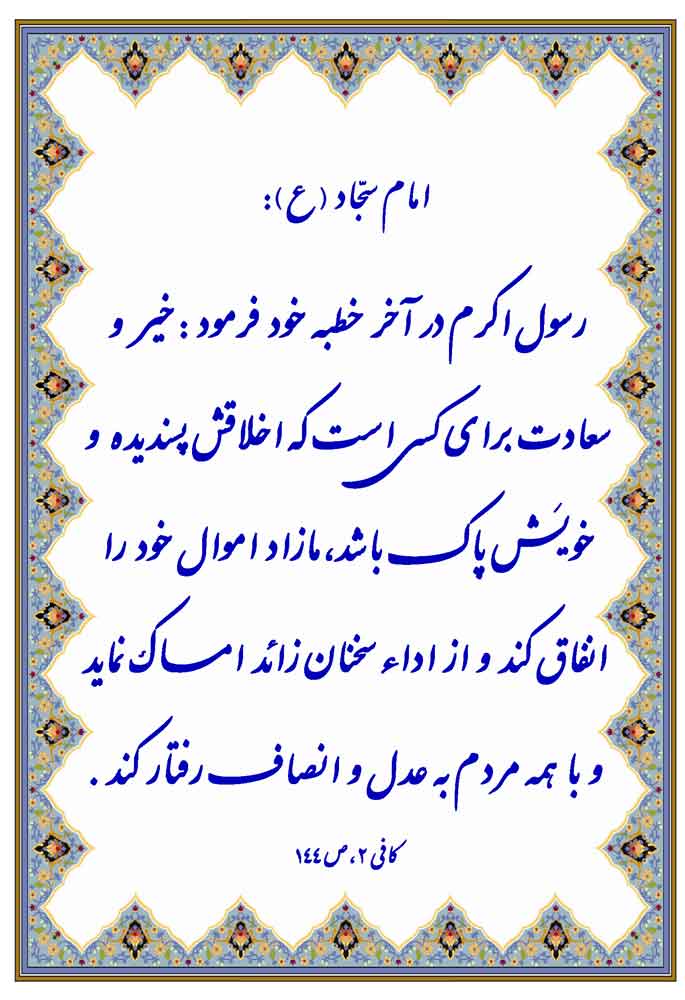 امام سجّاد (ع):
رسول اکرم در آخر خطبه خود فرمود : خیر و
سعادت برای کسی است که اخلاقش پسندیده و
خویَش پاک باشد، مازاد اموال خود را
انفاق کند و از اداء سخنان زائد امساک نماید
و با همه مردم به عدل و انصاف رفتار کند .
کافی ۲، ص ۱٤٤